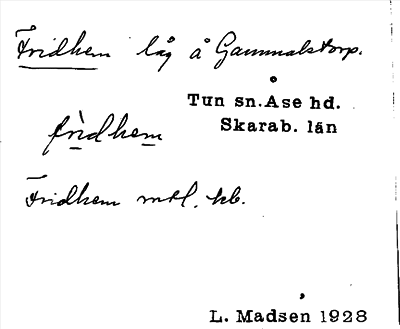 Fridhem låg å Gammalstorp.
Tun sn. Åse hd.
Skarab. län
frì̱dhem̱
Fridhem mtl. kb.
L. Madsen 1928